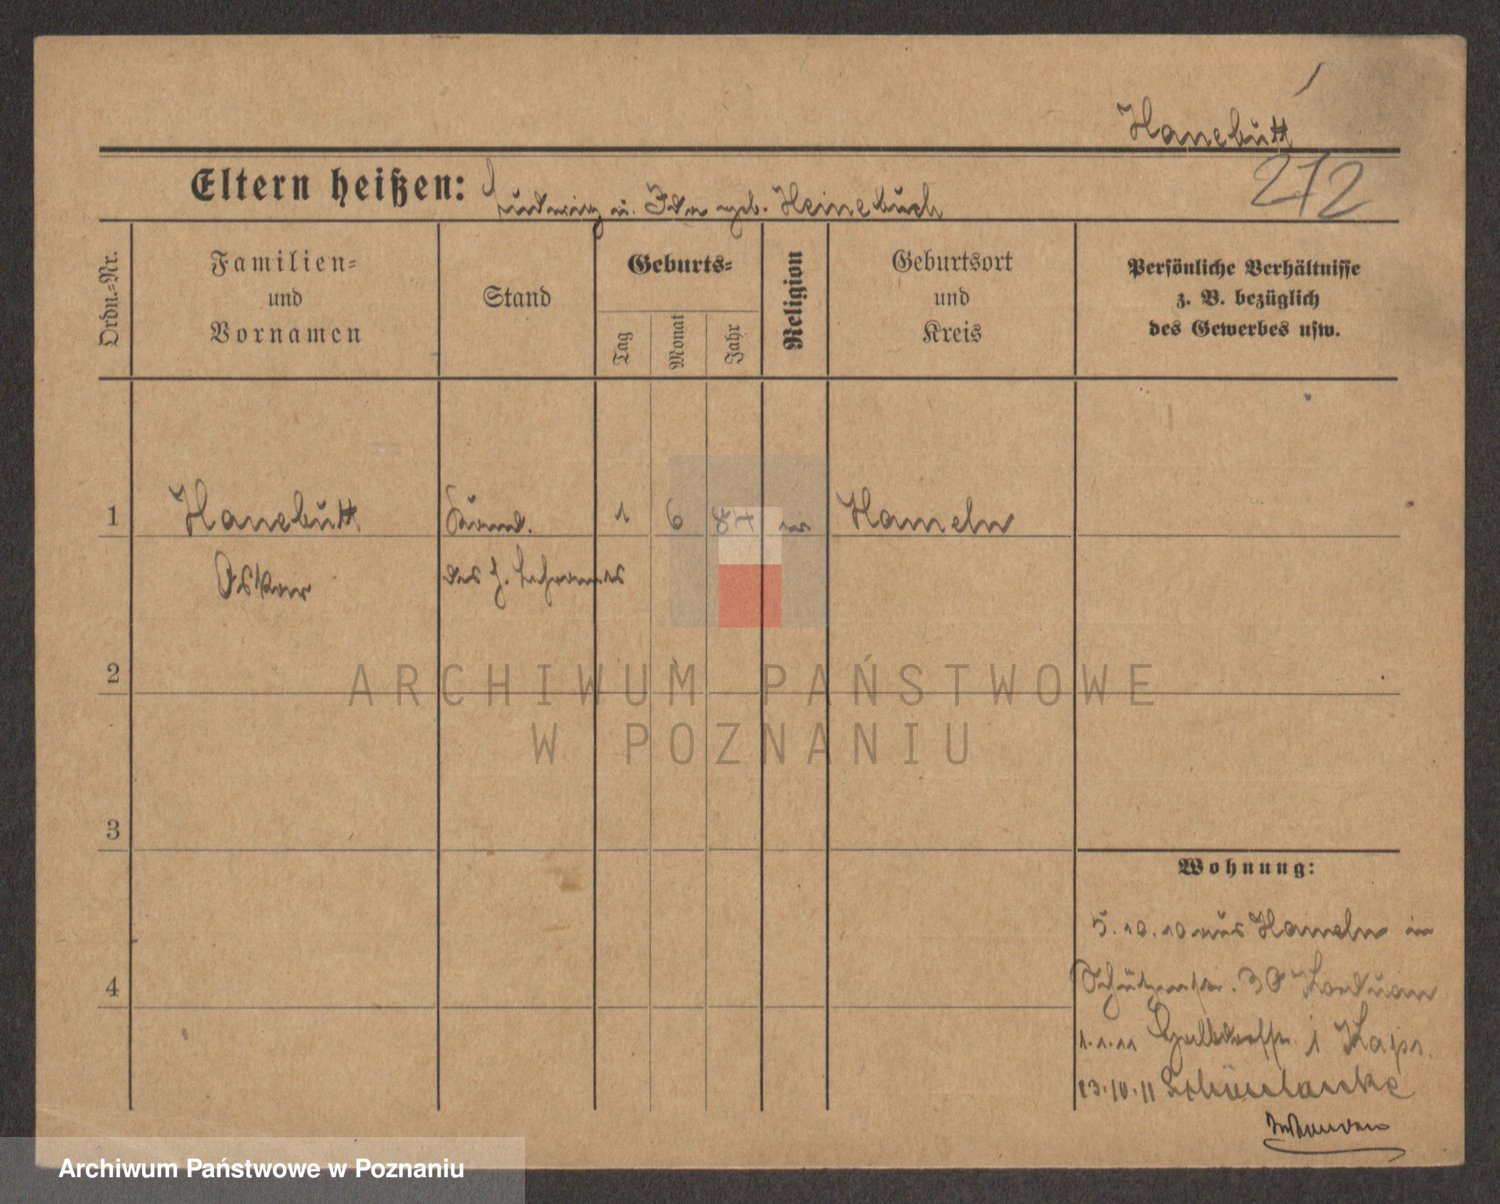 Hanebutt
212
Eltern heißen: Ludwig u. Ida geb. Heinebuch
Ordn.-Nr.
Familien-
und
Vornamen
Stand
Geburts-
Tag
Monat
Jahr
Religion
Geburtsort
und
Kreis
Persönliche Verhältnisse
z. B. bezüglich
des Gewerbes usw.
1
Hanebutt
Kand.
1
6
87
Hameln
Oskar
des h. Lehramtes
2
3
4
ARCHIWUM PAŃSTWOWE
W POZNANIU
Wohnung:
5.10.10 aus Hameln in
Schützenstr. 30
1.1.11
23.10.11 Schönlanke
Archiwum Państwowe w Poznaniu